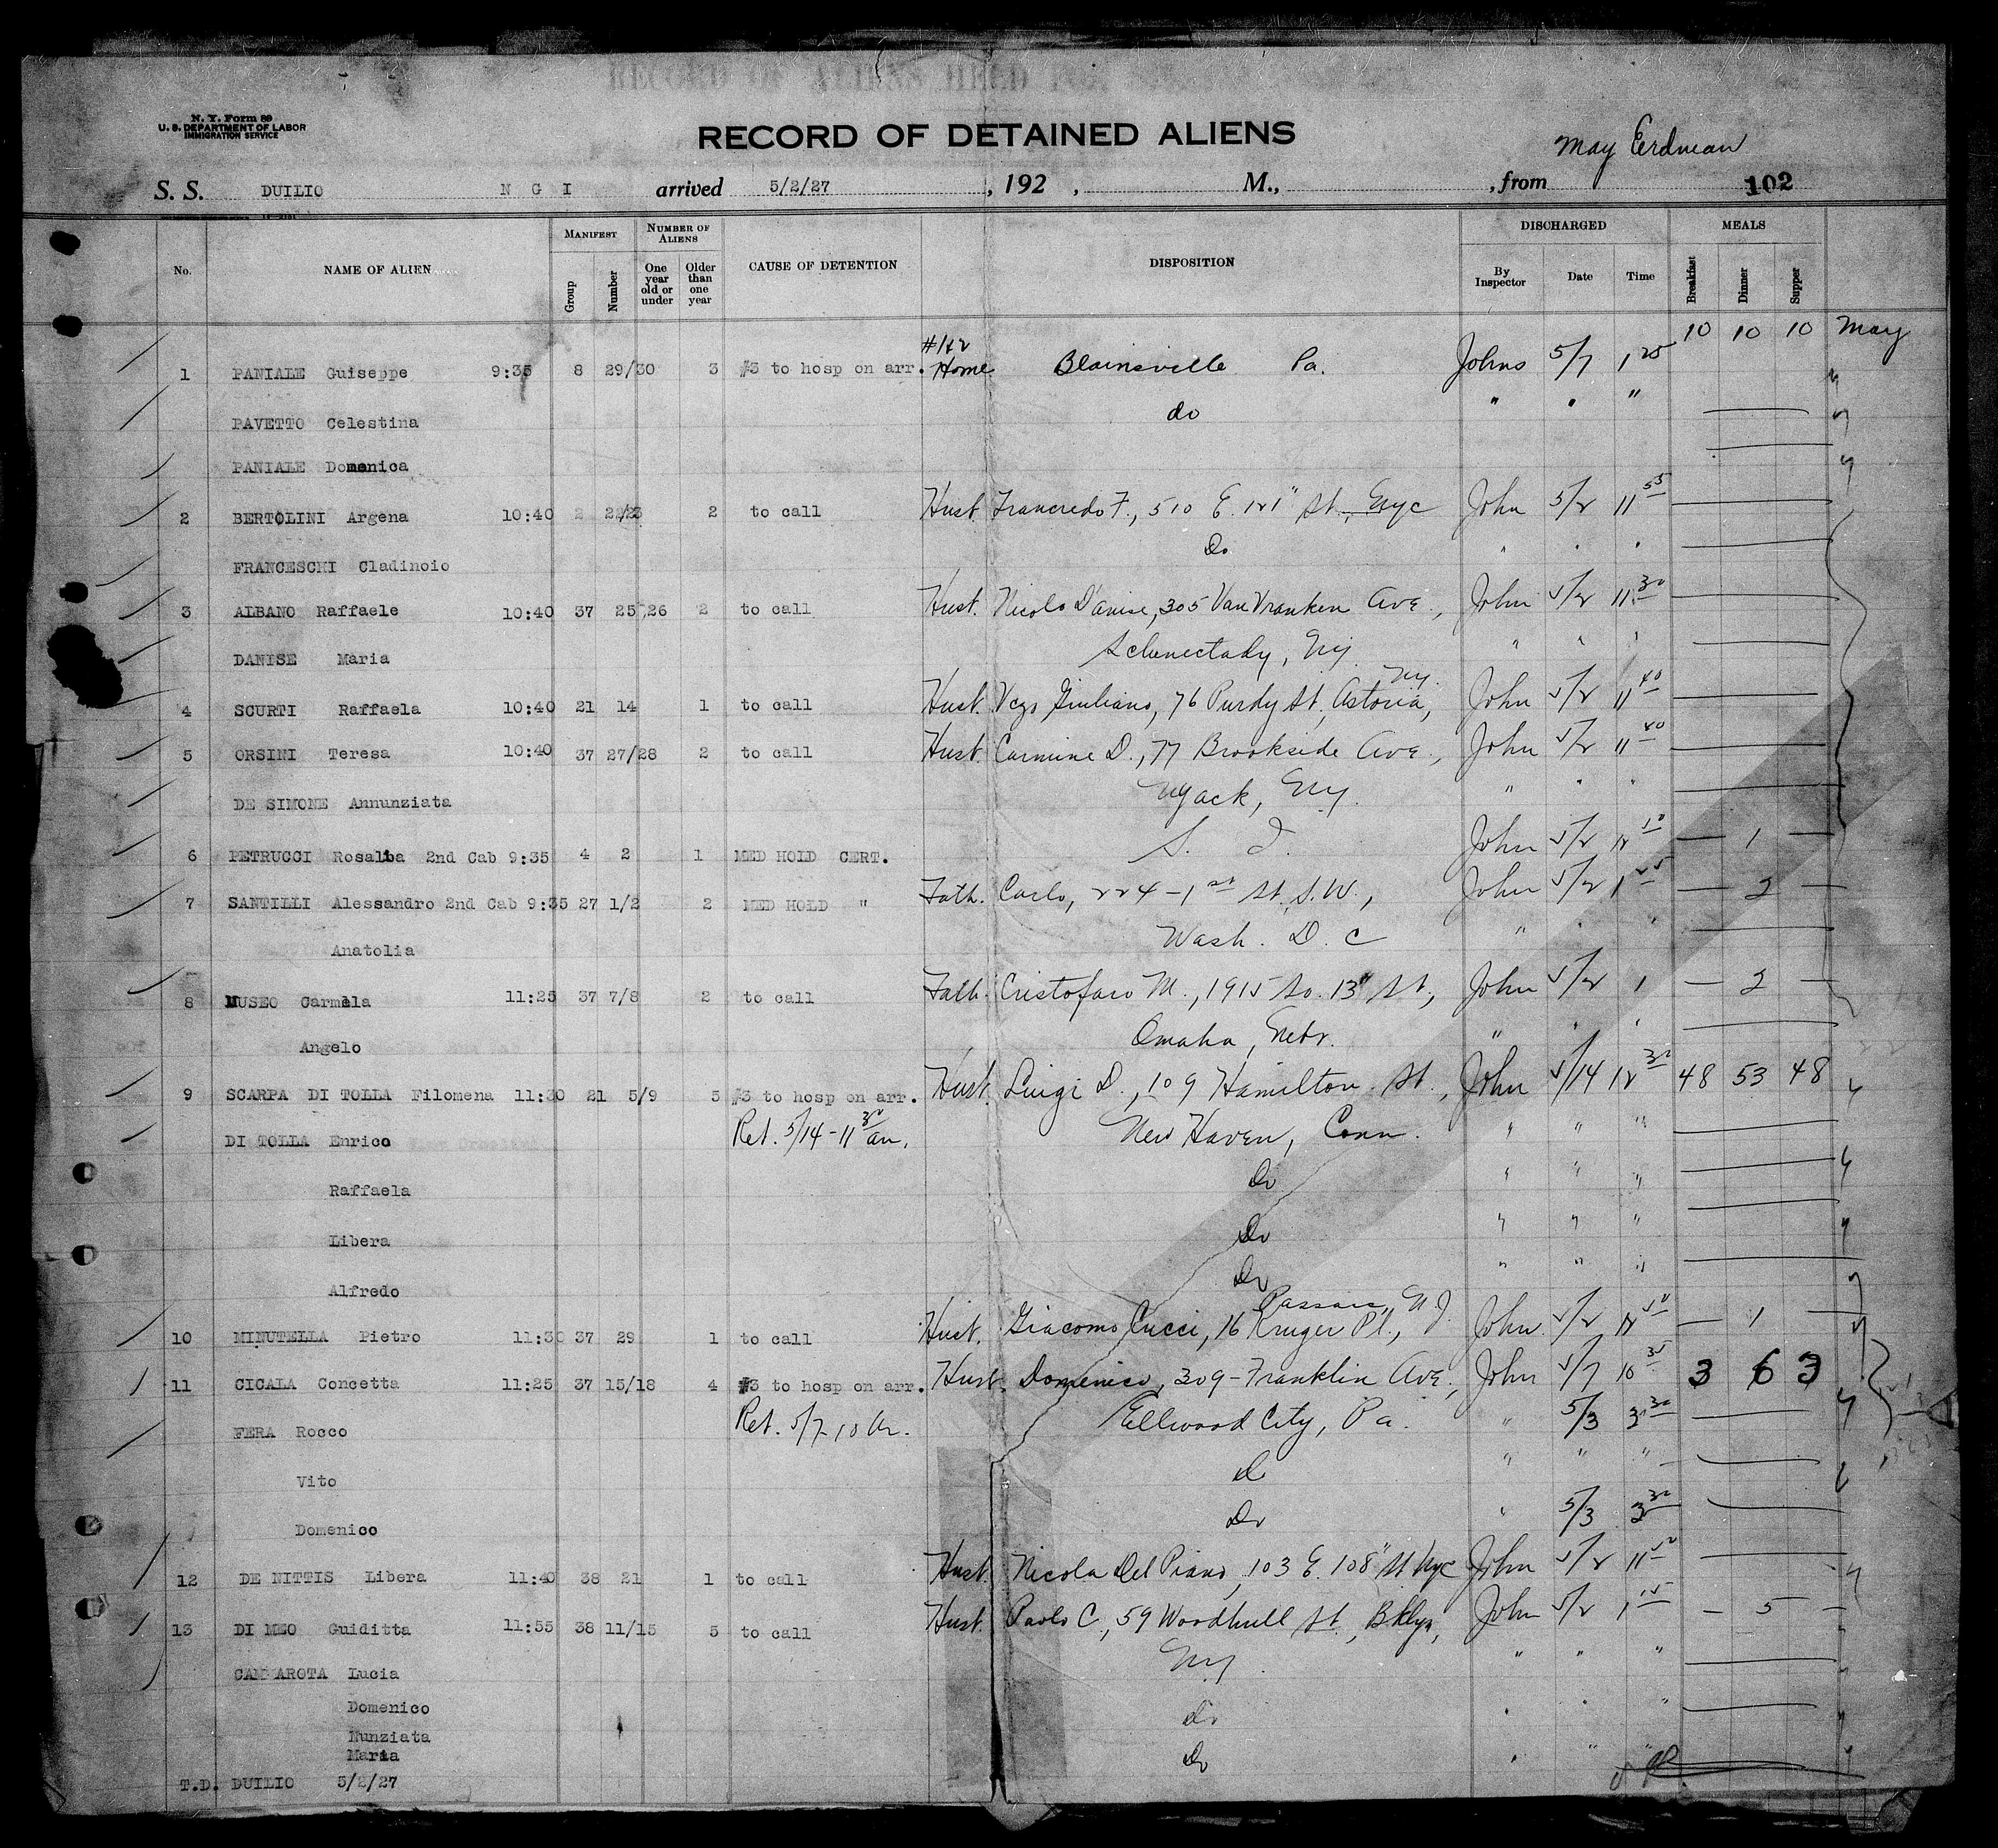 RECORD OF ALIENS HELD FO
N. Y. Form 89
U. S. DEPARTMENT OF LABOR
IMMIGRATION SERVICE
RECORD OF DETAINED ALIENS
May Erdman
S. S. DUILIO N G I arrived 5/2/27 , 192 , M., , from 102
No. NAME OF ALIEN MANIFEST Group Number NUMBER OF ALIENS One year old or under Older than one year CAUSE OF DETENTION DISPOSITION DISCHARGED By Inspector Date Time MEALS Breakfast Dinner Supper
1 PANIALE Guiseppe 9:35 8 29/30 3 #3 to hosp on arr. #1&2 Home Blainsville Pa. Johns 5/7 1 25 10 10 10 May
PAVETTO Celestina do " " "
PANIALE Domenica
2 BERTOLINI Argena 10:40 2 22/23 2 to call Husb. Francredo F., 510 E. 121" St., Nyc John 5/2 11 55
FRANCESCHI Cladinoio Do " " "
3 ALBANO Raffaele 10:40 37 25 26 2 to call Husb. Nicolo Danise, 305 Van Vranken Ave., John 5/2 11 30
DANISE Maria Schenectady, Ny. " " "
4 SCURTI Raffaela 10:40 21 14 1 to call Husb. Giuliano, 76 Purdy St., Astoria, Ny. John 5/2 11 40
5 ORSINI Teresa 10:40 37 27/28 2 to call Husb. Carmine D., 77 Brookside Ave., John 5/2 11 40
DE SIMONE Annunziata Nyack, Ny. " " "
6 PETRUCCI Rosalba 2nd Cab 9:35 4 2 1 MED HOLD CERT. S. I. John 5/2 12 50 — 1 —
7 SANTILLI Alessandro 2nd Cab 9:35 27 1/2 2 MED HOLD " Fath. Carlo, 224-1st St. S.W., John 5/2 1 25 — 2 —
Anatolia Wash. D. C " " "
8 MUSEO Carmela 11:25 37 7/8 2 to call Fath. Cristofaro M., 1915 So. 13" St., John 5/2 1 — 2 —
Angelo Omaha, Nebr. " " "
9 SCARPA DI TOLLA Filomena 11:30 21 5/9 5 #3 to hosp on arr. Husb. Luigi D., 109 Hamilton St., John 5/14 12 30 48 53 48
DI TOLLA Enrico Ret. 5/14-11 30 am. New Haven, Conn. " " "
Raffaela Do " " "
Libera Do " " "
Alfredo Do " " "
10 MINUTELLA Pietro 11:30 37 29 1 to call Husb. Giacomo Cucci, 16 Kruger Pl., Passaic, N. J. John 5/2 12 50 — 1 —
11 CICALA Concetta 11:25 37 15/18 4 #3 to hosp on arr. Husb. Domenico, 309-Franklin Ave., John 5/7 10 35 3 6 3
FERA Rocco Ret. 5/7-10 Am. Ellwood City, Pa. " 5/3 3 30
Vito Do " " "
Domenico Do " 5/3 3 30
12 DE NITTIS Libera 11:40 38 21 1 to call Husb. Nicola Del Piano, 103 E. 108" St Nyc John 5/2 11 50
13 DI MEO Guiditta 11:55 38 11/15 5 to call Husb. Paolo C., 59 Woodhull St., Bklyn, John 5/2 1 15 — 5 —
CAMMAROTA Lucia Ny. " " "
Domenico Do " " "
Nunziata
Maria Do " " "
T.D. DUILIO 5/2/27